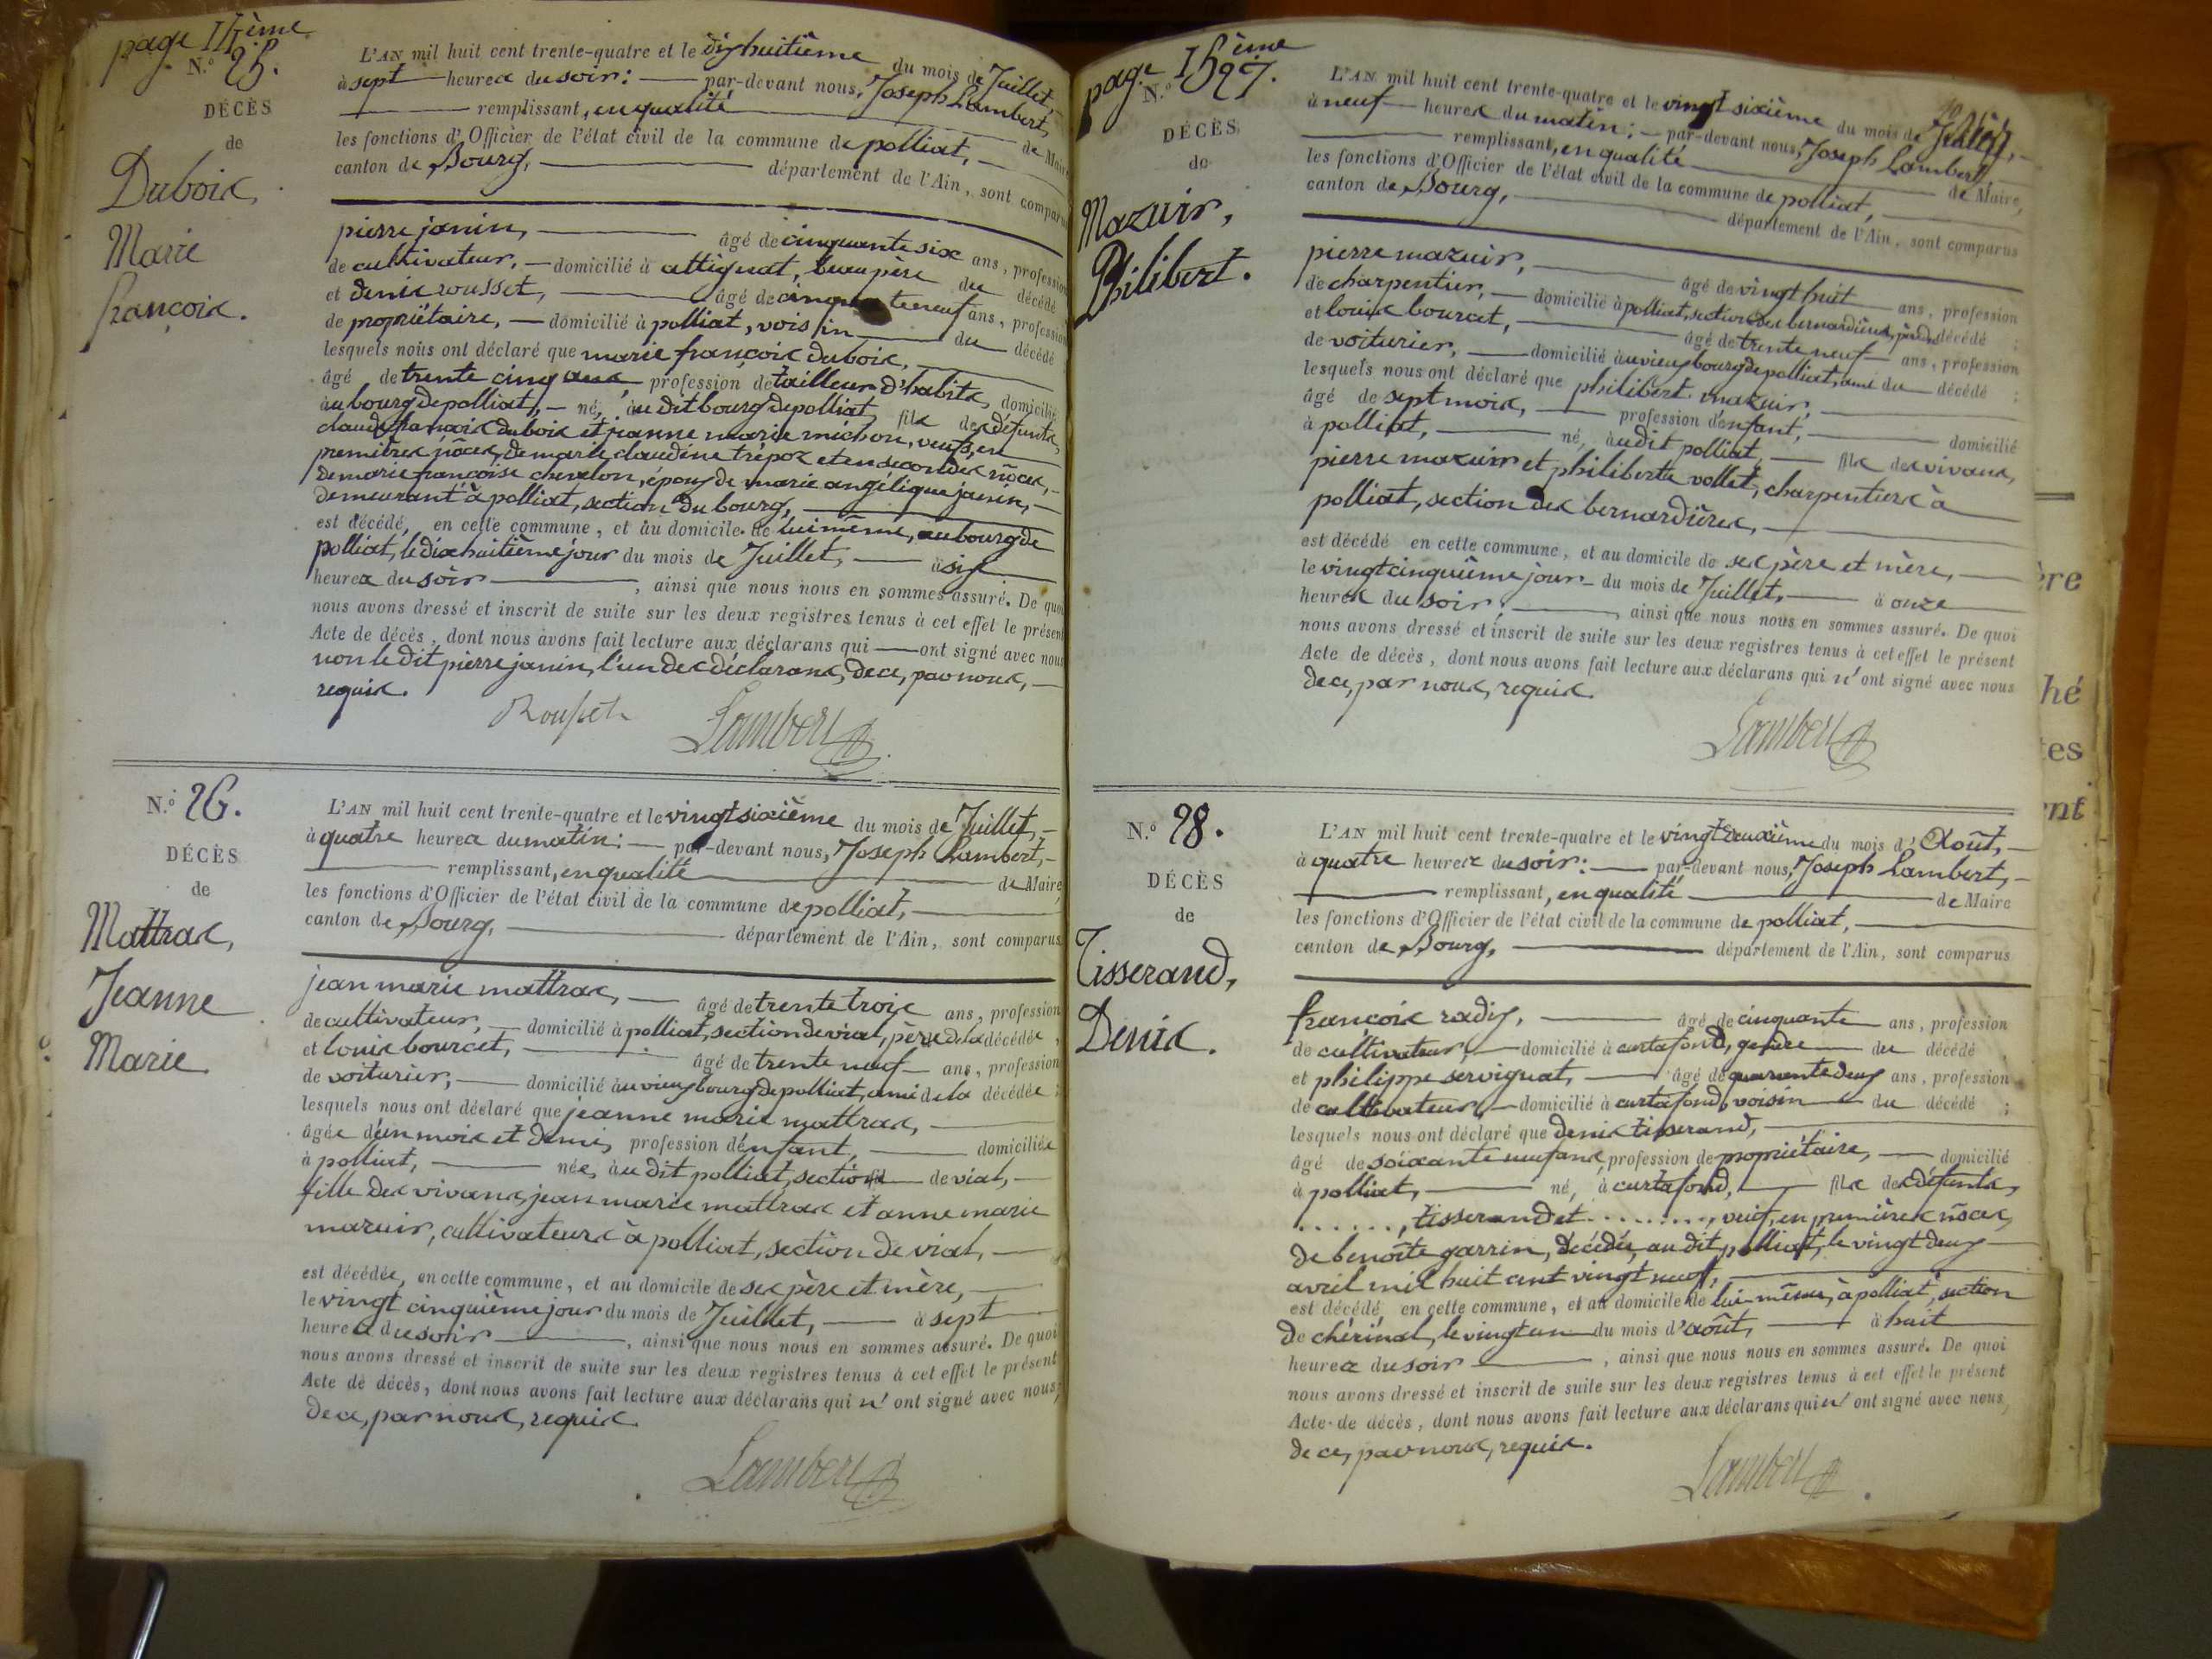 page 14ème
N.° 25.
DÉCÈS
de
Dubois,
Marie
françois.
L'AN mil huit cent trente-quatre et le dixhuitième du mois de Juillet,
à sept heures du soir: par-devant nous, Joseph Lambert,
remplissant, en qualité de Maire
les fonctions d'Officier de l'état civil de la commune de polliat,
canton de Bourg, département de l'Ain, sont comparus
pierre janin, âgé de cinquante six ans, profession
de cultivateur, domicilié à attignat, beau père du décédé
et denis rousset, âgé de cinquante neuf ans, profession
de propriétaire, domicilié à polliat, voisin du décédé
lesquels nous ont déclaré que marie françois dubois,
âgé de trente cinq ans, profession de tailleur d'habits, domicilié
au bourg de polliat, né, au dit bourg de polliat, fils des défunts,
claude françois dubois et jeanne marie michon, veuf, en
premières nôces, de marie claudine trépoz et en secondes nôces,
de marie françoise chevelon, époux de marie angélique janin,
demeurant à polliat, section du bourg,
est décédé, en cette commune, et au domicile de lui même, au bourg de
polliat, le dix huitième jour du mois de Juillet, à six
heures du soir, ainsi que nous nous en sommes assuré. De quoi
nous avons dressé et inscrit de suite sur les deux registres tenus à cet effet le présent
Acte de décès, dont nous avons fait lecture aux déclarans qui ont signé avec nous
non le dit pierre janin, l'un des déclarans, de ce, par nous,
requis.
Rousset Lambert
N.° 26.
DÉCÈS
de
Mattras,
Jeanne
Marie.
L'AN mil huit cent trente-quatre et le vingt sixième du mois de Juillet,
à quatre heures du matin: par-devant nous, Joseph Lambert,
remplissant, en qualité de Maire,
les fonctions d'Officier de l'état civil de la commune de polliat,
canton de Bourg, département de l'Ain, sont comparus
jean marie mattras, âgé de trente trois ans, profession
de cultivateur, domicilié à polliat, section de vial, père de la décédée,
et louis bourcet, âgé de trente neuf ans, profession
de voiturier, domicilié au vieux bourg de polliat, ami de la décédée;
lesquels nous ont déclaré que jeanne marie mattras,
âgée d'un mois et demi, profession d'enfant, domiciliée
à polliat, née, au dit polliat, section de vial,
fille des vivans, jean marie mattras et anne marie
mazuir, cultivateurs à polliat, section de vial,
est décédée, en cette commune, et au domicile de ses père et mère,
le vingt cinquième jour du mois de Juillet, à sept
heures du soir, ainsi que nous nous en sommes assuré. De quoi
nous avons dressé et inscrit de suite sur les deux registres tenus à cet effet le présent
Acte de décès, dont nous avons fait lecture aux déclarans qui n'ont signé avec nous,
de ce, par nous, requis.
Lambert
page 15ème
N.° 27.
DÉCÈS
de
Mazuir,
Philibert.
L'AN mil huit cent trente-quatre et le vingt sixième du mois de Juillet,
à neuf heures du matin; par-devant nous, Joseph Lambert,
remplissant, en qualité de Maire,
les fonctions d'Officier de l'état civil de la commune de polliat,
canton de Bourg, département de l'Ain, sont comparus
pierre mazuir, âgé de vingt huit ans, profession
de charpentier, domicilié à polliat, section des bernardières, père du décédé;
et louis bourcet, âgé de trente neuf ans, profession
de voiturier, domicilié au vieux bourg de polliat, ami du décédé;
lesquels nous ont déclaré que philibert mazuir,
âgé de sept mois, profession d'enfant, domicilié
à polliat, né, au dit polliat, fils des vivans,
pierre mazuir et philiberte vollet, charpentiers à
polliat, section des bernardières,
est décédé en cette commune, et au domicile de ses père et mère,
le vingt cinquième jour du mois de Juillet, à onze
heures du soir, ainsi que nous nous en sommes assuré. De quoi
nous avons dressé et inscrit de suite sur les deux registres tenus à cet effet le présent
Acte de décès, dont nous avons fait lecture aux déclarans qui n'ont signé avec nous
de ce, par nous, requis.
Lambert
N.° 28.
DÉCÈS
de
Tisserand,
Denis.
L'AN mil huit cent trente-quatre et le vingt deuxième du mois d'Août,
à quatre heures du soir: par-devant nous, Joseph Lambert,
remplissant, en qualité de Maire
les fonctions d'Officier de l'état civil de la commune de polliat,
canton de Bourg, département de l'Ain, sont comparus
françois radix, âgé de cinquante ans, profession
de cultivateur, domicilié à curtafond, gendre du décédé
et philippe servignat, âgé de quarante deux ans, profession
de cultivateur, domicilié à curtafond, voisin du décédé;
lesquels nous ont déclaré que denis tisserand,
âgé de soixante neuf ans, profession de propriétaire, domicilié
à polliat, né, à curtafond, fils des défunts,
......, tisserand et ........., veuf, en premières nôces,
de benoîte garrin, décédée, au dit polliat, le vingt deux
avril mil huit cent vingt neuf,
est décédé, en cette commune, et au domicile de lui-même, à polliat, section
de chérinal, le vingt un du mois d'août, à huit
heures du soir, ainsi que nous nous en sommes assuré. De quoi
nous avons dressé et inscrit de suite sur les deux registres tenus à cet effet le présent
Acte de décès, dont nous avons fait lecture aux déclarans qui n'ont signé avec nous,
de ce, par nous, requis.
Lambert
ère
hé
tes
nt